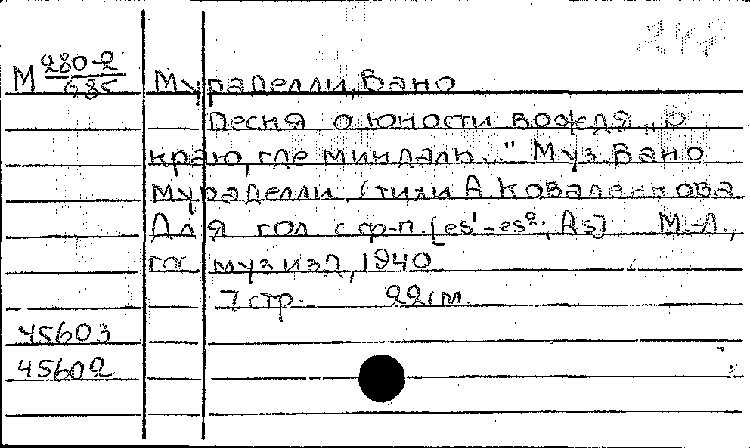 М 280-2/685 Мурадели, Вано
Песня о юности вождя „В
краю, где миндаль..." Муз. Вано
Мурадели. Стихи А. Коваленкова
Для гол. с ф-п. [es¹-es²; As] М.-Л.,
гос. муз. изд, 1940
7 стр. 22 см.
45603
45602